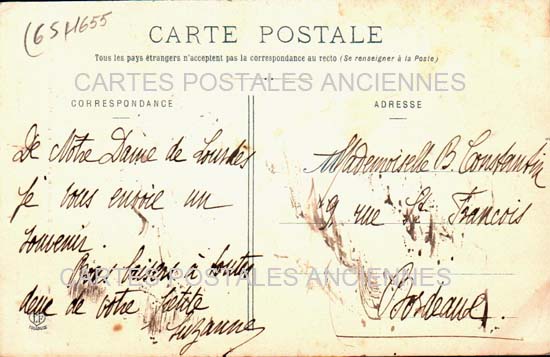 (6SH1655
CARTE POSTALE
Tous les pays étrangers n'acceptent pas la correspondance au recto (Se renseigner à la Poste)
CARTES POSTALES ANCIENNES
CORRESPONDANCE
ADRESSE
De Notre Dame de Lourdes
je vous envoie un
souvenir.
Bons baisers à toutes
deux de votre petite
Suzanne
Mademoiselle B. Constantin
9 rue St Francois
Bordeaux
CARTES POSTALES ANCIENNES